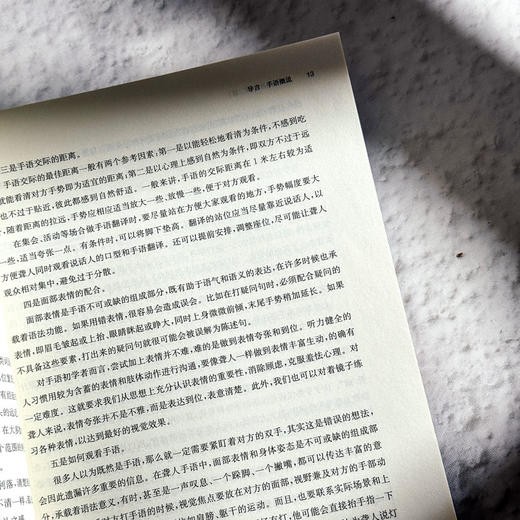 导言 手语概况 13
三是手语交际的距离。
手语交际的最佳距离一般有两个参考因素,第一是以能轻松地看清为条件,不感到吃
就能看清对方手势即为适宜的距离;第二是以心理上感到自然为条件,即双方不过于远
也不过于贴近,彼此都感到自然舒适。一般来讲,手语的交际距离在1米左右较为适
,随着距离的拉远,手势应相应适当放大一些,放慢一些,便于对方观看。
在集会、活动等场合做手语翻译时,要尽量站在方便大家观看的地方,手势幅度要大
一些,适当夸张一点。有条件时,可以将脚下垫高。翻译的站位应当尽量靠近说话人,以
方便聋人同时观看说话人的口型和手语翻译。还可以提前安排,调整座位,尽可能让聋人
观众相对集中,避免过于分散。
四是面部表情的配合。
面部表情是手语不可或缺的组成部分,既有助于语气和语义的表达,在许多时候也承
载着语法功能。如果用错表情,很容易会造成误会。比如在打疑问句时,必须配合疑问的
表情,即眉毛皱起或上抬、眼睛眯起或睁大,同时上身微微前倾,末尾手势稍加延长。如果
不具备这些要素,打出来的疑问句就很可能会被误解为陈述句。
对手语初学者而言,尝试加上表情并不难,难的是做到表情夸张和到位。听力健全的
人习惯用较为含蓄的表情和肢体动作进行沟通,要像聋人一样做到表情丰富生动,的确有
一定难度。这就要求我们从思想上充分认识表情的重要性,消除顾虑,克服羞怯心理。对
聋人来说,表情夸张并不是不雅,而是表达到位,表意清楚。此外,我们也可以对着镜子练
习各种表情,以达到最好的视觉效果。
五是如何观看手语。
很多人以为既然是手语,那么就一定需要紧盯着对方的双手,其实这是错误的想法,
会因此遗漏许多重要的信息。在聋人手语中,面部表情和身体姿态是不可或缺的组成部
分,承载着语法意义,有时,甚至是一声叹息、一个跺脚、一个撇嘴,都可以传达丰富的意
对方打手语的时候,视觉焦点要放在对方的面部,视野兼及对方的手部动
如肩膀、躯干的运动。而且,也要联系实际场景和上
灯,他可能会直接抬手指一下
为聋人说灯